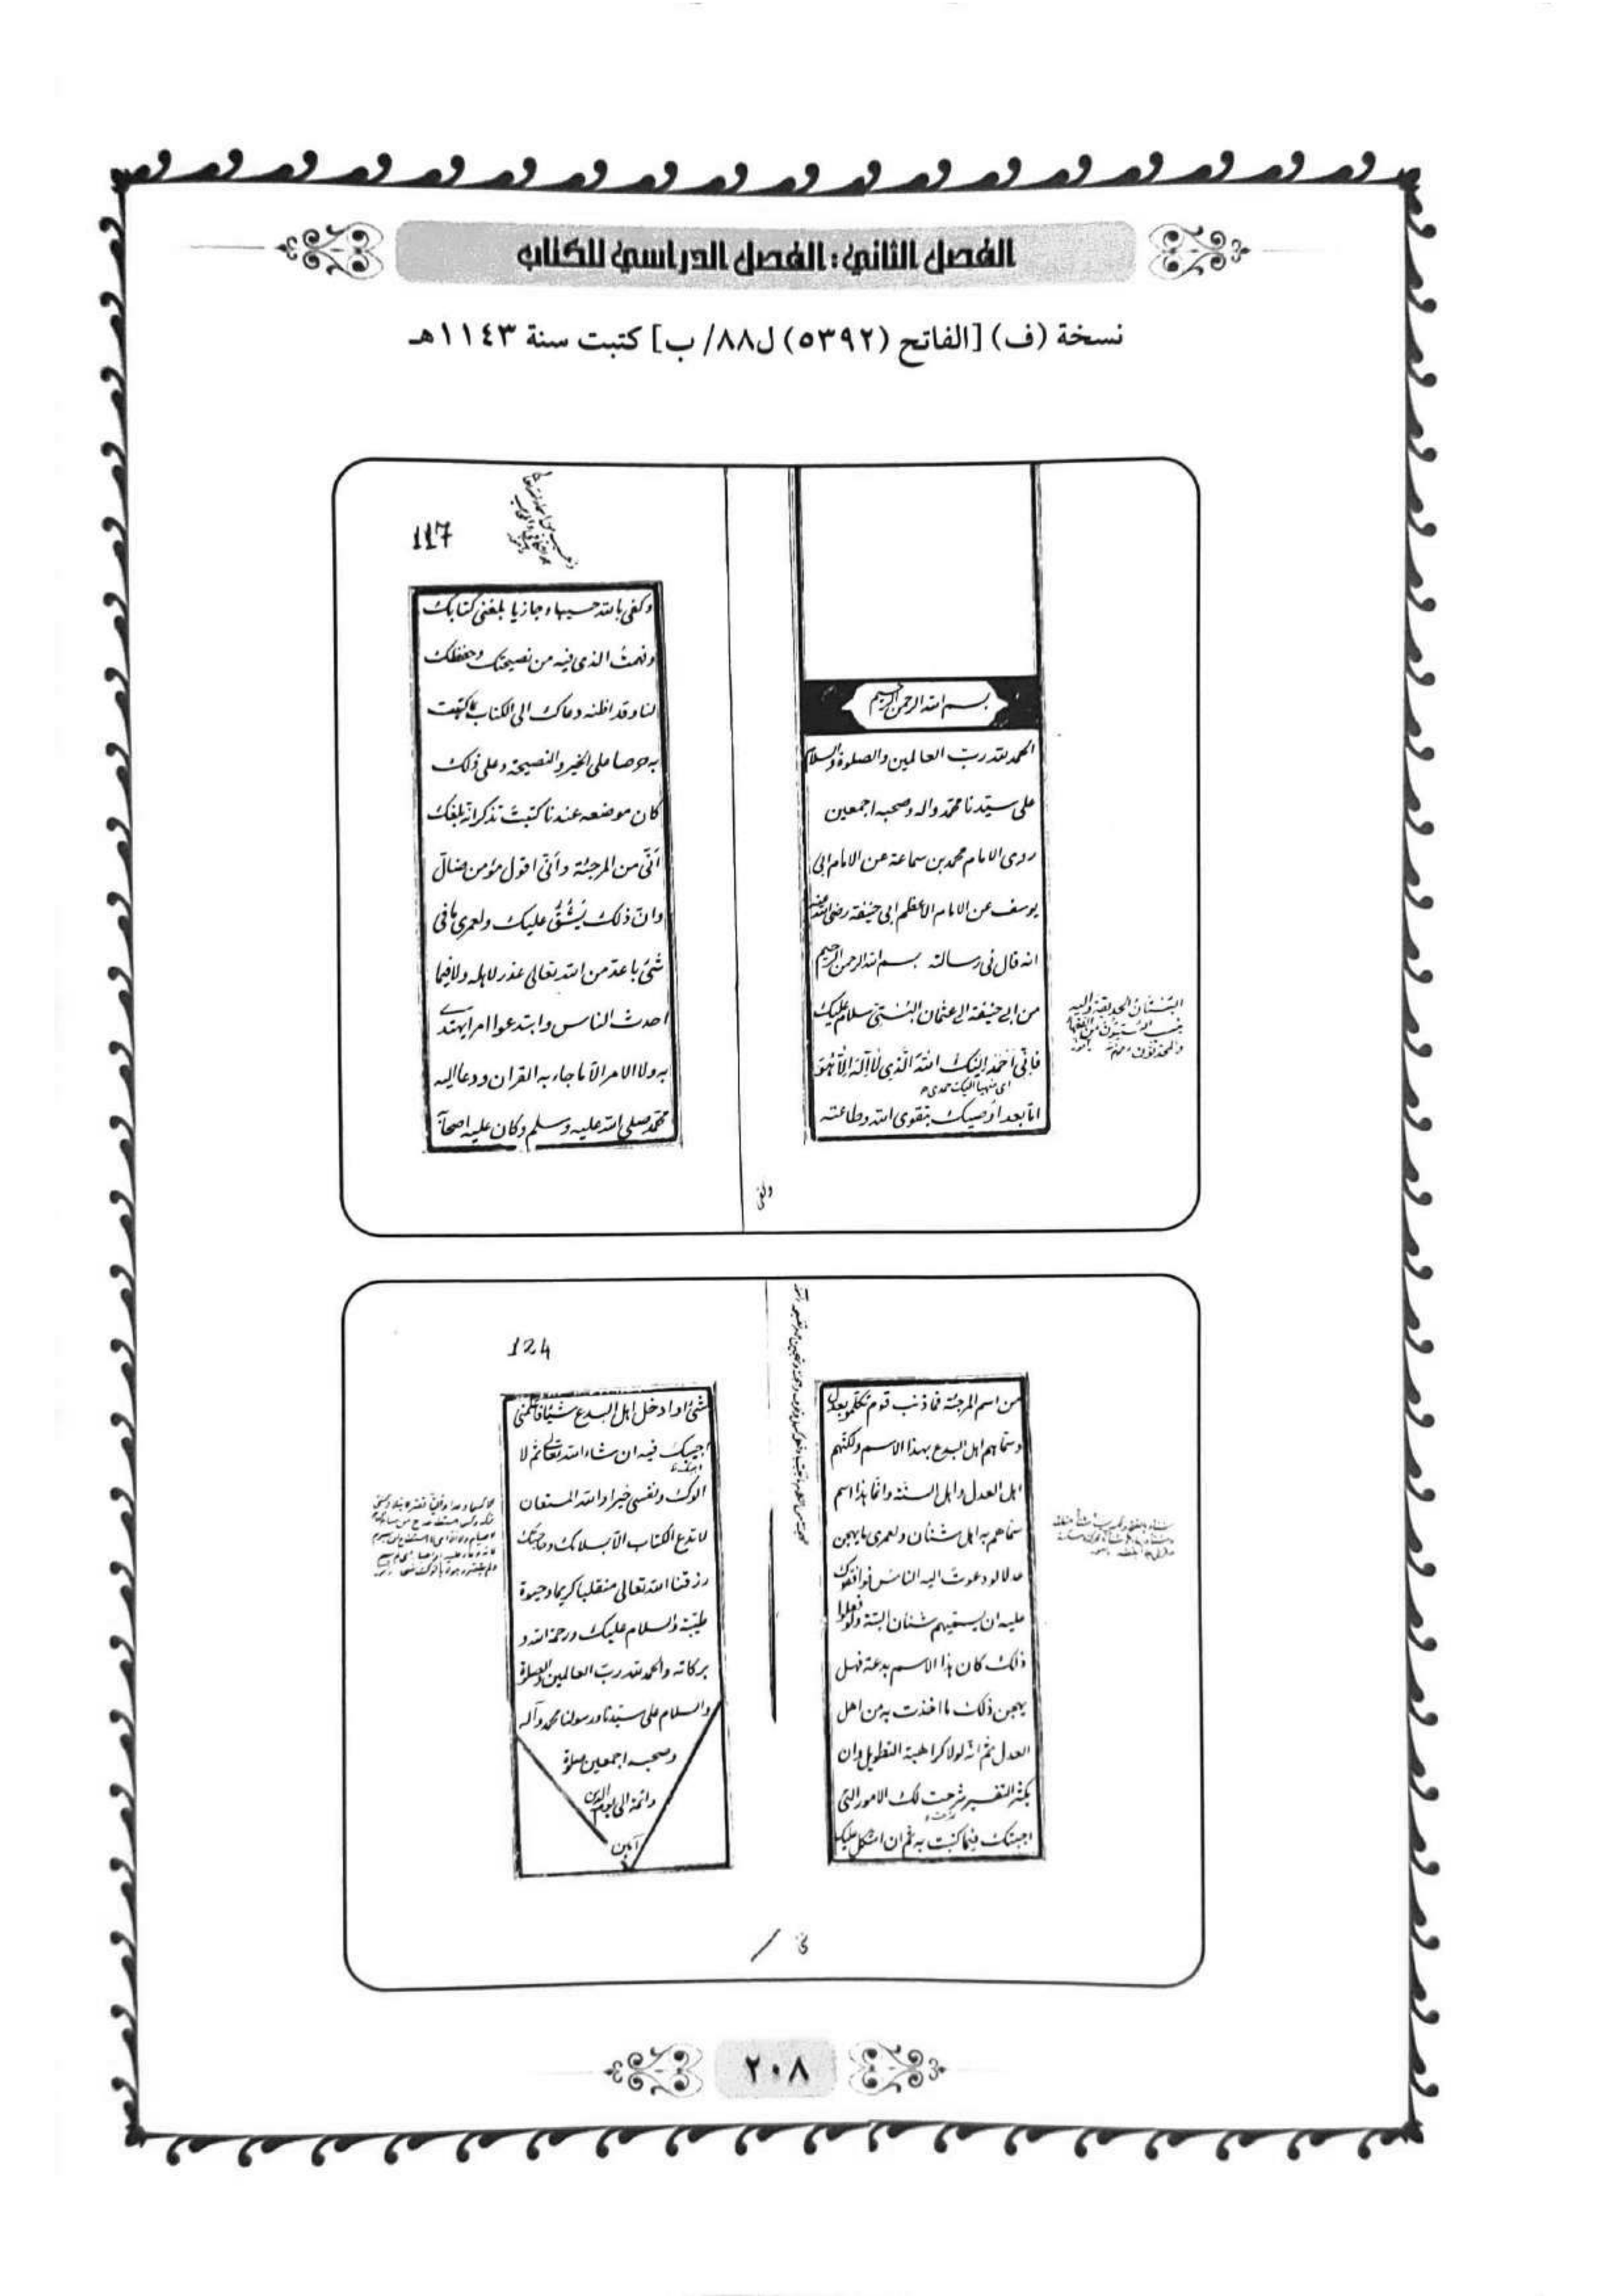 الفصل الثاني: الفصل الدراسي للكتاب
نسخة (ف) [الفاتح (٥٣٩٢) ل٨٨/ ب] كتبت سنة ١١٤٣هـ
بسم الله الرحمن الرحيم
الحمد لله رب العالمين والصلوة والسلام
على سيدنا محمد واله وصحبه اجمعين
روى الامام محمد بن سماعة عن الامام ابى
يوسف عن الامام الاعظم ابى حنيفة رضى الله عنه
انه قال فى رسالته بسم الله الرحمن الرحيم
من ابى حنيفة الى عثمان البستى سلام عليك
فَاِنّى اَحْمَد اِلَيْكَ اللهَ الَّذِى لَا اِلهَ اِلَّا هُوَ
اى منهيا اليك حمدى
امّا بعد اوصيك بتقوى الله وطاعته
البستان الحديقة واليه
ينسب البستيون من الفقهاء
والمحدثون
وكفى
117
وكفى بالله حسيبا وجازيا بلغنى كتابك
وفهمتُ الذى فيه من نصيحتك وحفظك
لنا وقد اظنه دعاك الى الكتاب بما كتبت
به حرصا على الخير والنصيحة وعلى ذلك
كان موضعه عندنا كتبتَ تذكر انه بلغك
أنّى من المرجئة وأنّى اقول مؤمن ضالّ
وانّ ذلك يَشُقُّ عليك ولعمرى ما فى
شئ باعد من الله تعالى عذر لاهله ولا فيما
احدث الناس وابتدعوا امر يهتدى
به ولا الامر الّا ما جاء به القران ودعا اليه
محمّد صلى الله عليه وسلم وكان عليه اصحا
من اسم المرجئة فما ذنب قوم تكلموا بعدل
وسمّاهم اهل البدع بهذا الاسم ولكنهم
اهل العدل واهل السنّة وانّما هذا اسم
سمّاهم به اهل شنئان ولعمرى ما يهجن
عدلا لو دعوتَ اليه الناس فوافقوك
عليه ان يسمّيهم شنئان البتة ولو فعلوا
ذلك كان هذا الاسم بدعة فهل
يهجن ذلك ما اخذت به من اهل
العدل ثمّ انّه لولا كراهية التطويل وان
يكثر التفسير شرحت لك الامور التى
اجبتك فيما كتبت به ثم ان اشكل عليك
124
شئ او ادخل اهل البدع شيئا فاعلمنى
اجيبك فيه ان شاء الله تعالى ثم لا
الوك ونفسى خيرا والله المستعان
لا تدع الكتاب الىّ بسلامك وحاجتك
رزقنا الله تعالى منقلبا كريما وحيوة
طيّبة والسلام عليك ورحمة الله و
بركاته والحمد لله ربّ العالمين والصلوة
والسلام على سيّدنا ورسولنا محمد وآله
وصحبه اجمعين صلوة
دائمة الى يوم الدين
آمين
٢٠٨